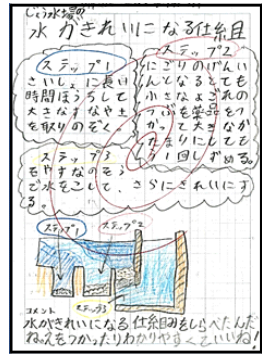 じょう水場の
水がきれいになる仕組
ステップ1
さいしょに長い
時間ほうちして
大きなすなや土
を取りのぞく。
ステップ2
にごりのげんい
んとなるとても
小さなよごれの
つぶを薬をつか
って大きなか
たまりにしても
う1回しずめる。
ステップ3
もやすなのそう
で水をこして、さらにきれいにす
る
ステップ1
ステップ2
ステップ3
コメント
水がきれいになる仕組みをしらべたんだ
ね。えをつかったりわかりやすくていいね!